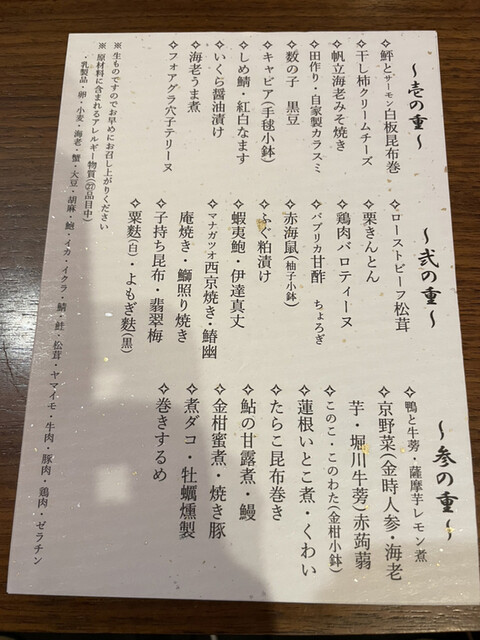 ～壱の重～
✧鮃とサーモン白板昆布巻
✧干し柿クリームチーズ
✧帆立海老みそ焼き
✧田作り・自家製カラスミ
✧数の子　黒豆
✧キャビア(手毬小鉢)
✧しめ鯖・紅白なます
✧いくら醤油漬け
✧海老うま煮
✧フォアグラ穴子テリーヌ
～弐の重～
✧ローストビーフ松茸
✧栗きんとん
✧鶏肉バロティーヌ
✧パプリカ甘酢　ちょろぎ
✧赤海鼠(柚子小鉢)
✧ふぐ粕漬け
✧蝦夷鮑・伊達真丈
✧マナガツオ西京焼き・鰆幽
庵焼き・鰤照り焼き
✧子持ち昆布・翡翠梅
✧粟麩(白)・よもぎ麩(黒)
～参の重～
✧鴨と牛蒡・薩摩芋レモン煮
✧京野菜(金時人参・海老
芋・堀川牛蒡)赤蒟蒻
✧このこ・このわた(金柑小鉢)
✧蓮根いとこ煮・くわい
✧たらこ昆布巻き
✧鮎の甘露煮・鰻
✧金柑蜜煮・焼き豚
✧煮ダコ・牡蠣燻製
✧巻きするめ
※生ものですのでお早めにお召し上がりください
※原材料に含まれるアレルギー物質(㉗品目中)
・乳製品・卵・小麦・海老・蟹・大豆・胡麻・鮑・イカ・イクラ・鯖・鮭、松茸・ヤマイモ・牛肉・豚肉・鶏肉・ゼラチン